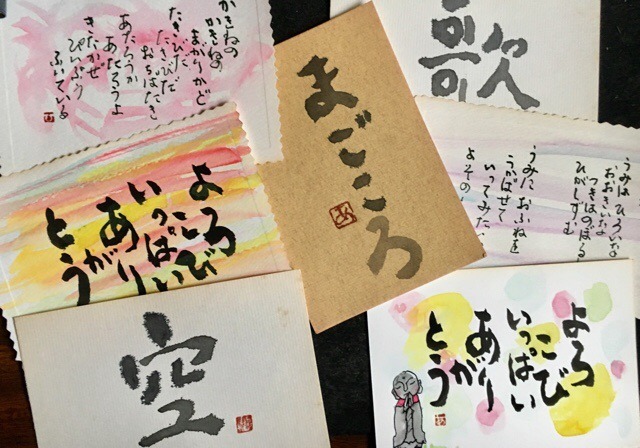 かきねの
かきねの
まがりかど
たきびだ
たきびだ
おちばたき
あたろうか
あたろうよ
きたかぜ
ぴいぷう
ふいている
まごころ
歌
うみはひろいな
おおきいな
つきはのぼるし
ひがしずむ
うみにおふねを
うかばせて
いってみた
よその
よろ
こび
いっぱい
あり
が
とう
空
よろ
こび
いっぱい
あり
が
とう